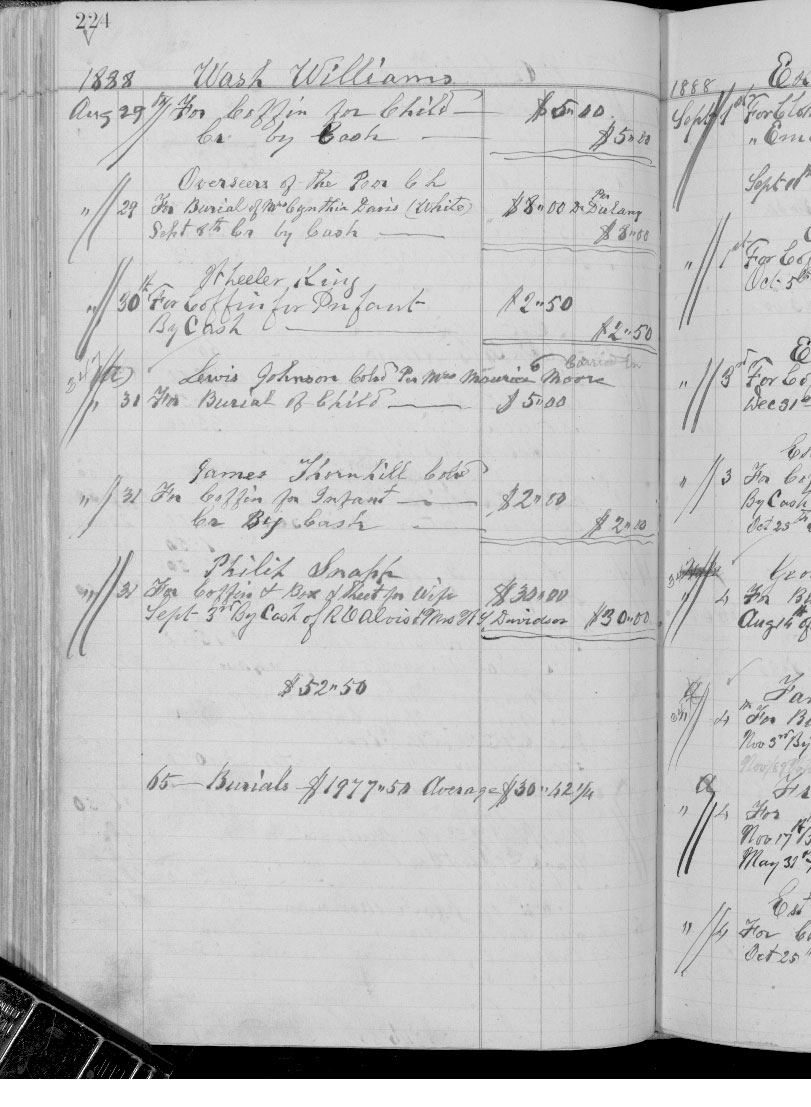 224
1888 Wash Williams
Aug 29th For Coffin for Child — $5"00
Cr by Cash — $5"00
Overseers of the Poor C H
" 29 For Burial of Mrs Cynthia Davis (White) $8"00 Dr Per Dulany
Sept 8th Cr by Cash — $8"00
Wheeler King
" 30th For Coffin for Infant $2"50
By Cash — $2"50
Carried to
Lewis Johnson Cold Per Mrs Maurice Moore
" 31 For Burial of Child — $5"00
James Thornhill Cold
" 31 For Coffin for Infant — $2"00
Cr By Cash — $2"00
Philip Snapp
" 31 For Coffin & Box & Sheet for Wife $30"00
Sept 3rd By Cash of R O Alvis Davidson $30"00
$52"50
65 — Burials — $1977"50 Average $30"42 1/4
1888
Sept 1st For
"
Sept 11th
" 1st For
Oct 5th
" 3rd For
Dec 31
" 3 For
By Cash
Oct 23
" 4 For
Aug 14th
4 For
Nov 3rd By
" 4 For
Nov 17th
May 31
" 4 For
Oct 25